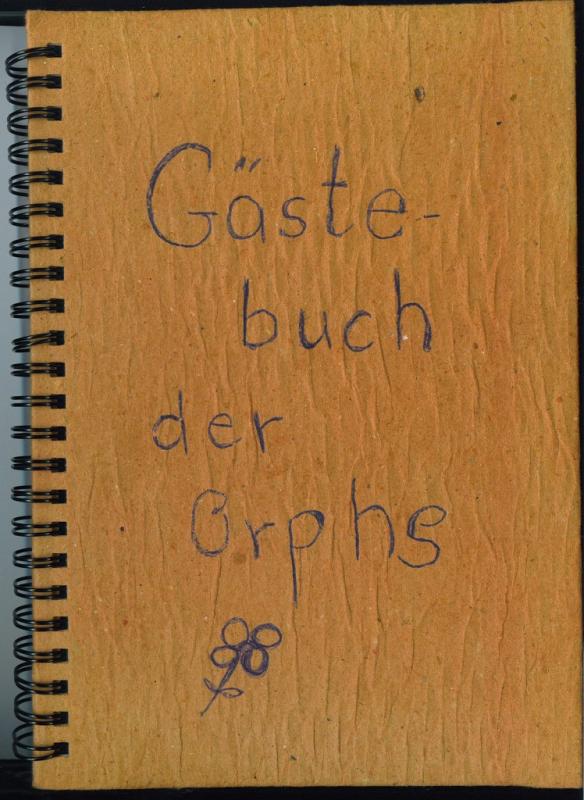 Gäste-
buch
der
Orphs